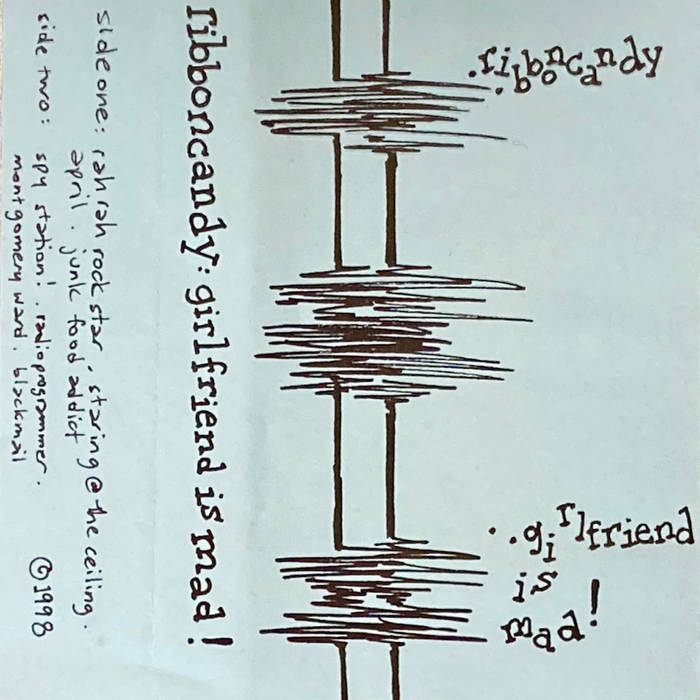 .ribboncandy
..girlfriend
is
mad!
ribboncandy: girlfriend is mad!
side one: rah rah rock star. staring @ the ceiling.
april. junk food addict
side two: spy station!. radioprogrammer.
montgomery ward. blackmail
©1998